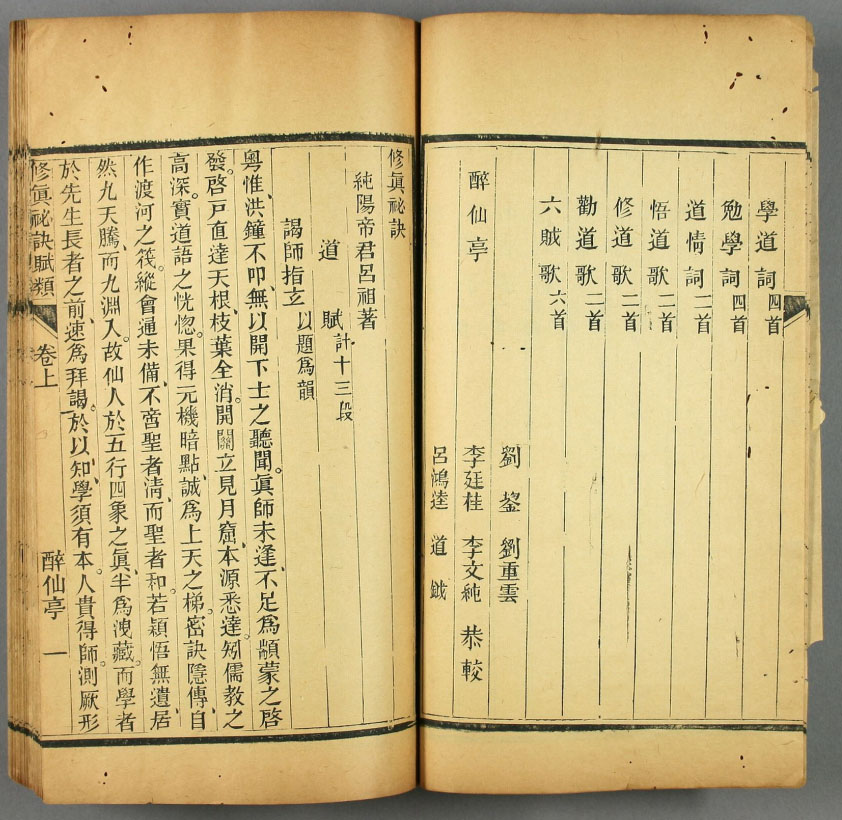 學道詞 四首
勉學詞 四首
道情詞 二首
悟道歌 二首
修道歌 二首
勸道歌 二首
六賊歌 六首
劉鋆 劉重雲
醉仙亭 李廷桂 李文純 恭較
呂鴻逵 道鉞
修眞祕訣
純陽帝君呂祖著
道賦 計十三段
謁師指玄 以題爲韻
粵惟、洪鐘不叩、無以開下士之聽聞。眞師未逢、不足爲顓蒙之啓
發。啓戸直達天根、枝葉全消、開關立見月窟、本源悉達。矧儒教之
高深。實道語之恍惚。果得元機暗點、誠爲上天之梯。密訣隱傳、自
作渡河之筏。縱會通未備、不啻聖者淸、而聖者和。若穎悟無遺、居
然九天騰、而九淵入。故仙人於五行四象之眞、半爲洩藏。而學者
於先生長者之前、速爲拜謁。於以知、學須有本。人貴得師。測厥形
修眞祕訣賦類 卷上 醉仙亭 一